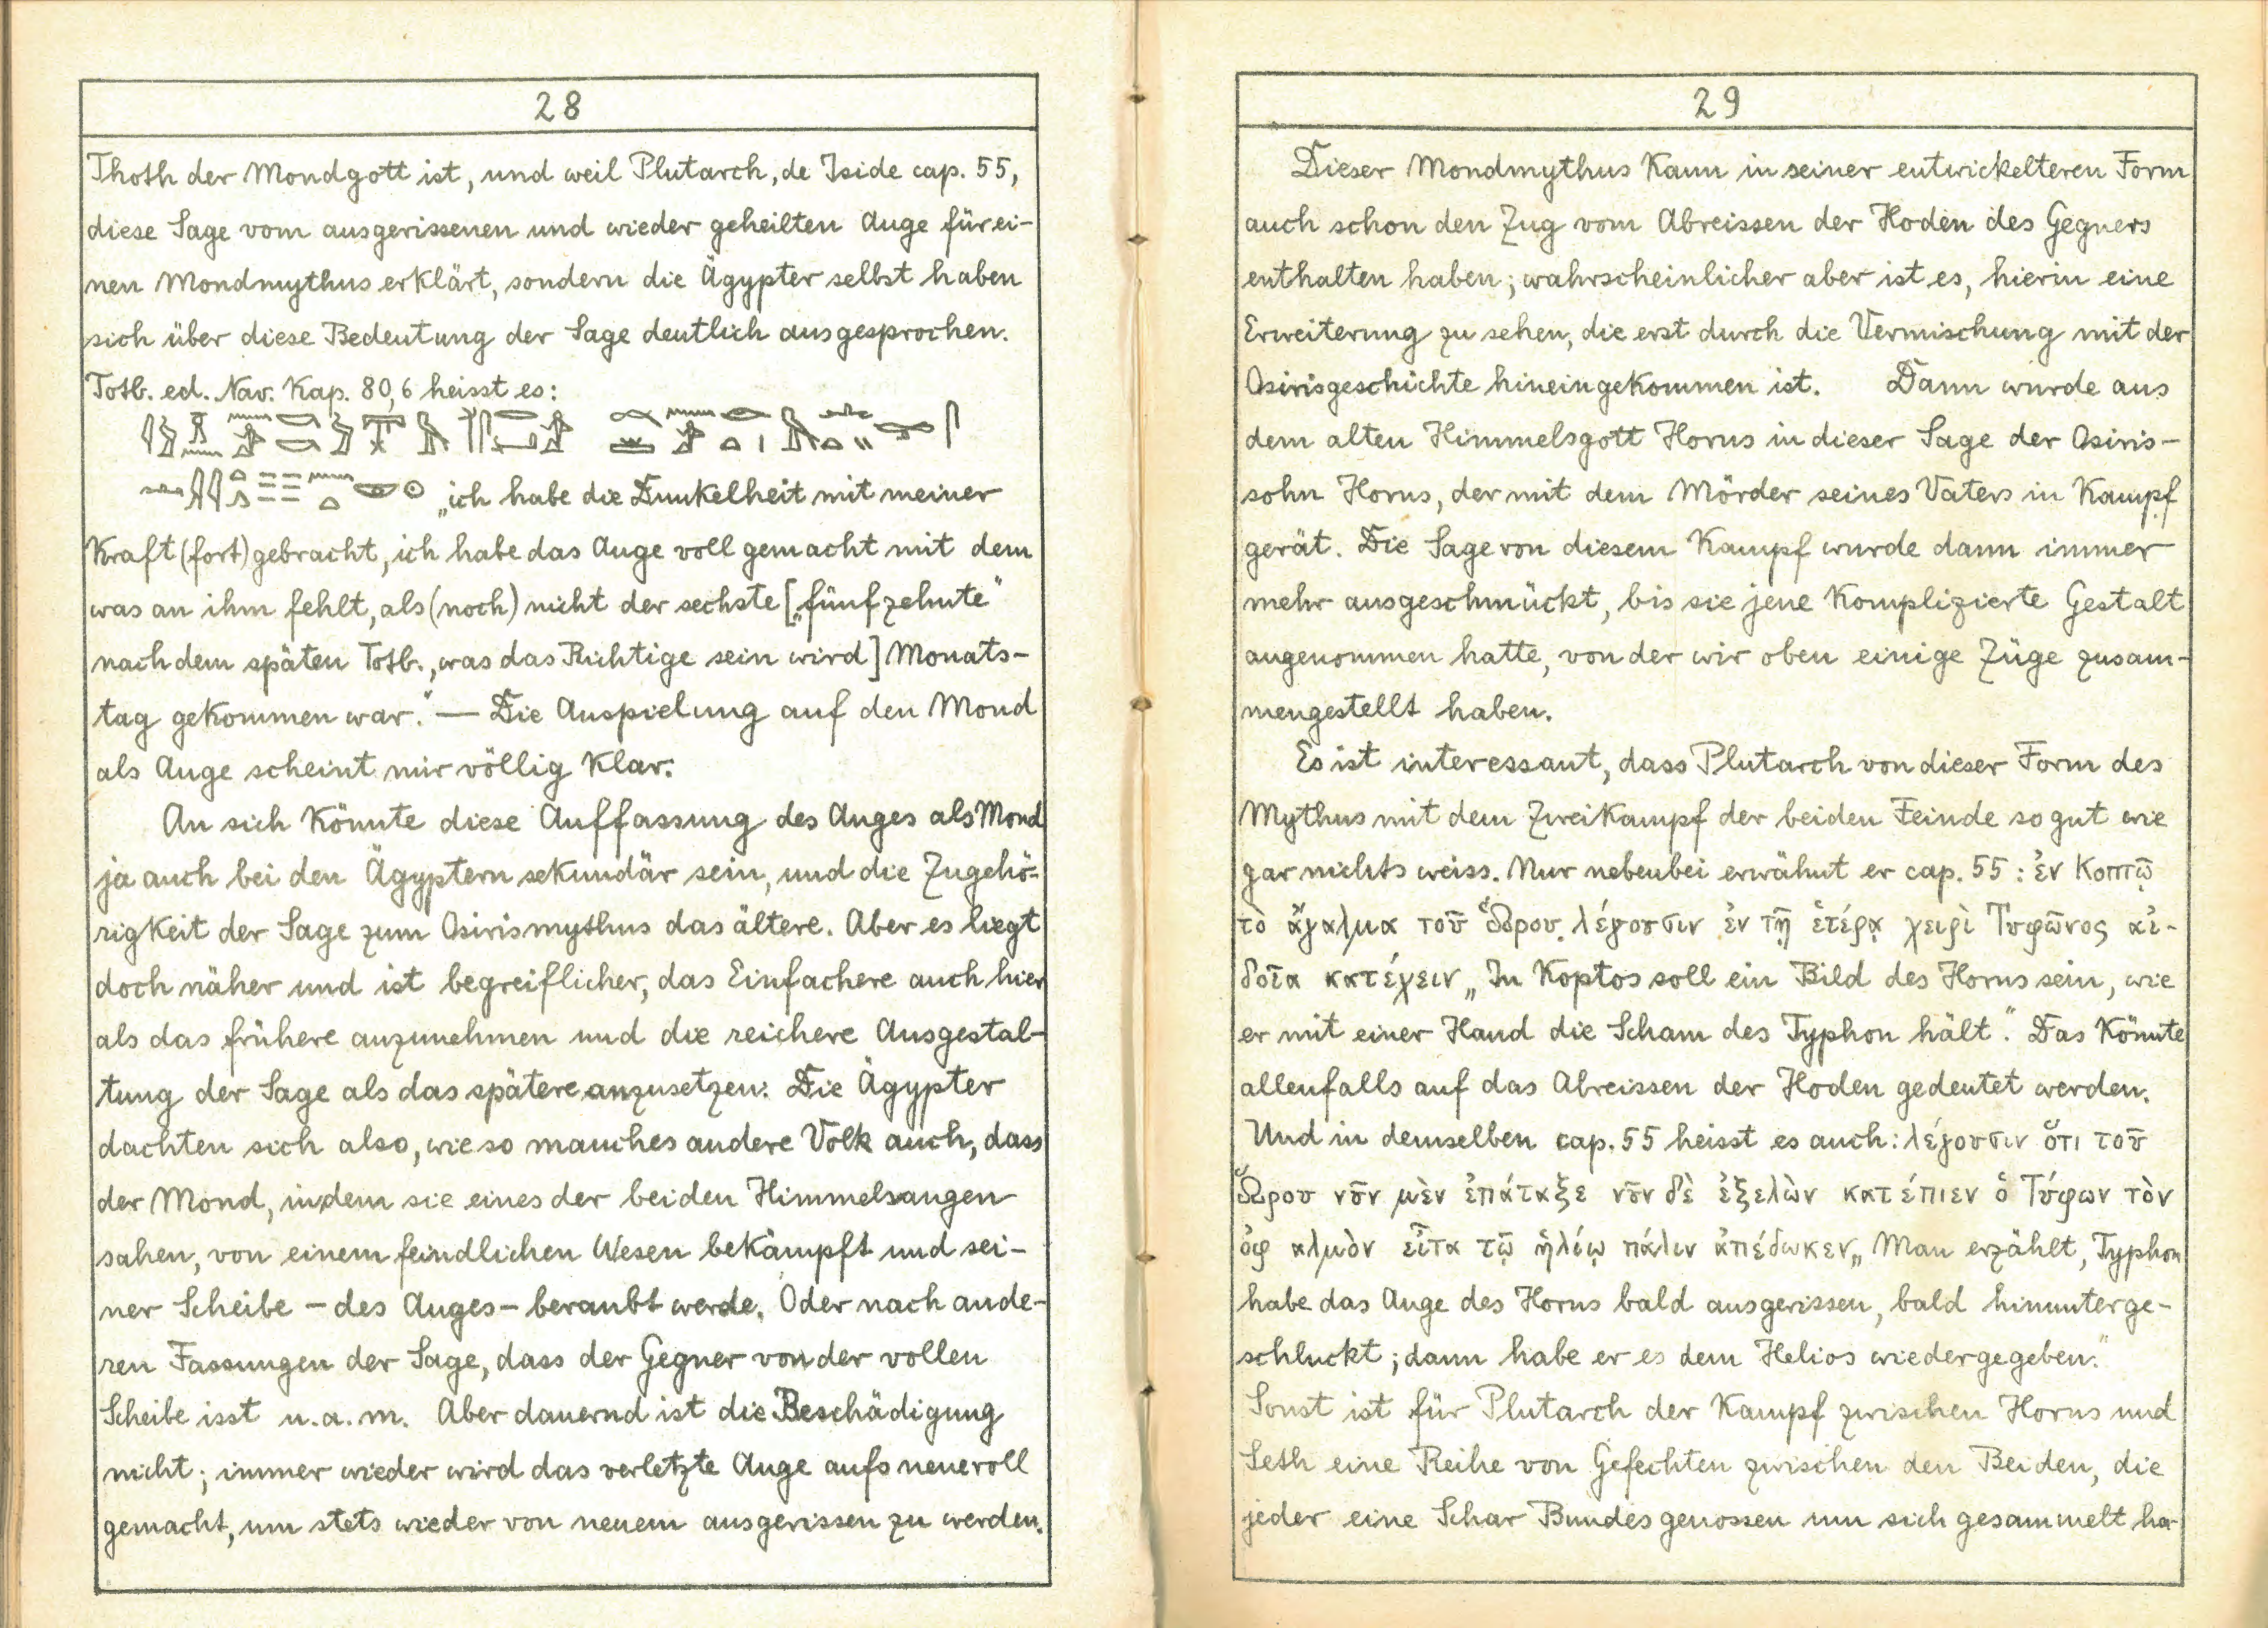 28
Thoth der Mondgott ist, und weil Plutarch, de Iside cap. 55,
diese Sage vom ausgerissenen und wieder geheilten Auge für ei-
nen Mondmythus erklärt, sondern die Ägypter selbst haben
sich über diese Bedeutung der Sage deutlich ausgesprochen.
Totb. ed. Nav. Kap. 80,6 heisst es:
„ich habe die Dunkelheit mit meiner
Kraft (fort)gebracht, ich habe das Auge voll gemacht mit dem
was an ihm fehlt, als (noch) nicht der sechste [„fünfzehnte“
nach dem späten Totb., was das Richtige sein wird] Monats-
tag gekommen war.“ — Die Anspielung auf den Mond
als Auge scheint mir völlig klar.
An sich könnte diese Auffassung des Auges als Mond
ja auch bei den Ägyptern sekundär sein, und die Zugehö-
rigkeit der Sage zum Osirismythus das ältere. Aber es liegt
doch näher und ist begreiflicher, das Einfachere auch hier
als das frühere anzunehmen und die reichere Ausgestal-
tung der Sage als das spätere anzusetzen. Die Ägypter
dachten sich also, wie so manches andere Volk auch, dass
der Mond, indem sie eines der beiden Himmelsaugen
sahen, von einem feindlichen Wesen bekämpft und sei-
ner Scheibe – des Auges – beraubt werde. Oder nach ande-
ren Fassungen der Sage, dass der Gegner von der vollen
Scheibe isst u.a.m. Aber dauernd ist die Beschädigung
nicht; immer wieder wird das verletzte Auge aufs neue voll
gemacht, um stets wieder von neuem ausgerissen zu werden.
29
Dieser Mondmythus kann in seiner entwickelteren Form
auch schon den Zug vom Abreissen der Hoden des Gegners
enthalten haben; wahrscheinlicher aber ist es, hierin eine
Erweiterung zu sehen, die erst durch die Vermischung mit der
Osirisgeschichte hineingekommen ist. Dann wurde aus
dem alten Himmelsgott Horus in dieser Sage der Osiris-
sohn Horus, der mit dem Mörder seines Vaters in Kampf
gerät. Die Sage von diesem Kampf wurde dann immer
mehr ausgeschmückt, bis sie jene komplizierte Gestalt
angenommen hatte, von der wir oben einige Züge zusam-
mengestellt haben.
Es ist interessant, dass Plutarch von dieser Form des
Mythus mit dem Zweikampf der beiden Feinde so gut wie
gar nichts weiss. Nur nebenbei erwähnt er cap. 55: ἐν Κοπτῷ
τὸ ἄγαλμα τοῦ Ὥρου λέγουσιν ἐν τῇ ἑτέρᾳ χειρὶ Τυφῶνος αἰ-
δοῖα κατέχειν „In Koptos soll ein Bild des Horus sein, wie
er mit einer Hand die Scham des Typhon hält“. Das könnte
allenfalls auf das Abreissen der Hoden gedeutet werden.
Und in demselben cap. 55 heisst es auch: λέγουσιν ὅτι τοῦ
Ὥρου νῦν μὲν ἐπάταξε νῦν δὲ ἐξελὼν κατέπιεν ὁ Τύφων τὸν
ὀφθαλμὸν εἶτα τῷ ἡλίῳ πάλιν ἀπέδωκεν „Man erzählt, Typhon
habe das Auge des Horus bald ausgerissen, bald hinunterge-
schluckt; dann habe er es dem Helios wiedergegeben.“
Sonst ist für Plutarch der Kampf zwischen Horus und
Seth eine Reihe von Gefechten zwischen den Beiden, die
jeder eine Schar Bundesgenossen um sich gesammelt ha-